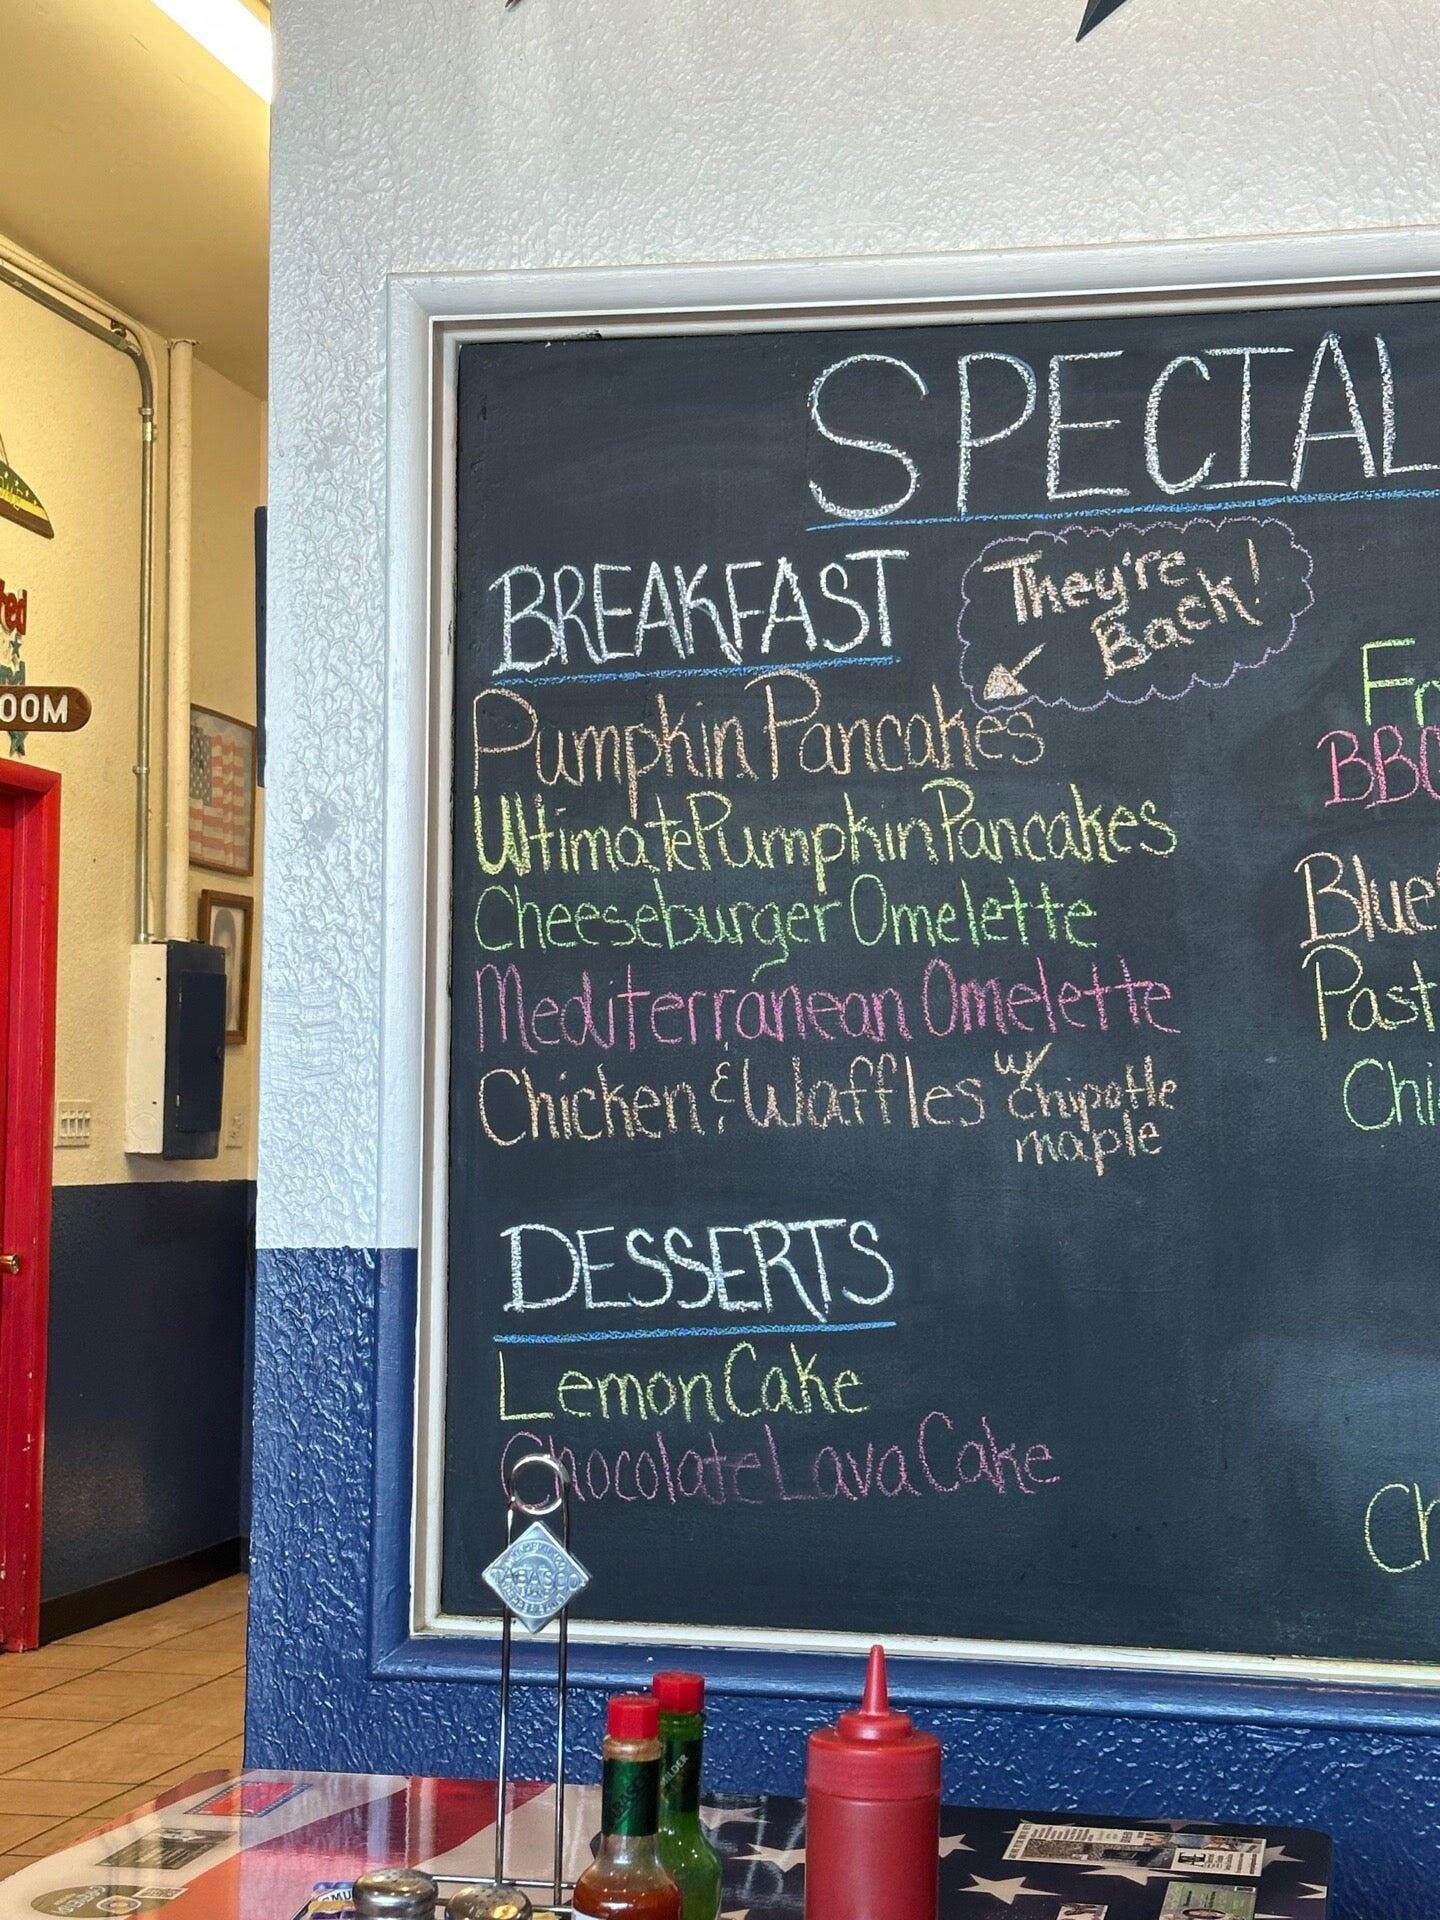 SPECIAL
BREAKFAST
They're
Back!
Pumpkin Pancakes
Ultimate Pumpkin Pancakes
Cheeseburger Omelette
Mediterranean Omelette
Chicken & Waffles w/
Chipotle
maple
DESSERTS
Lemon Cake
Chocolate Lava Cake
Fr
BBQ
Blue
Past
Chi
Ch
OOM
TABASCO